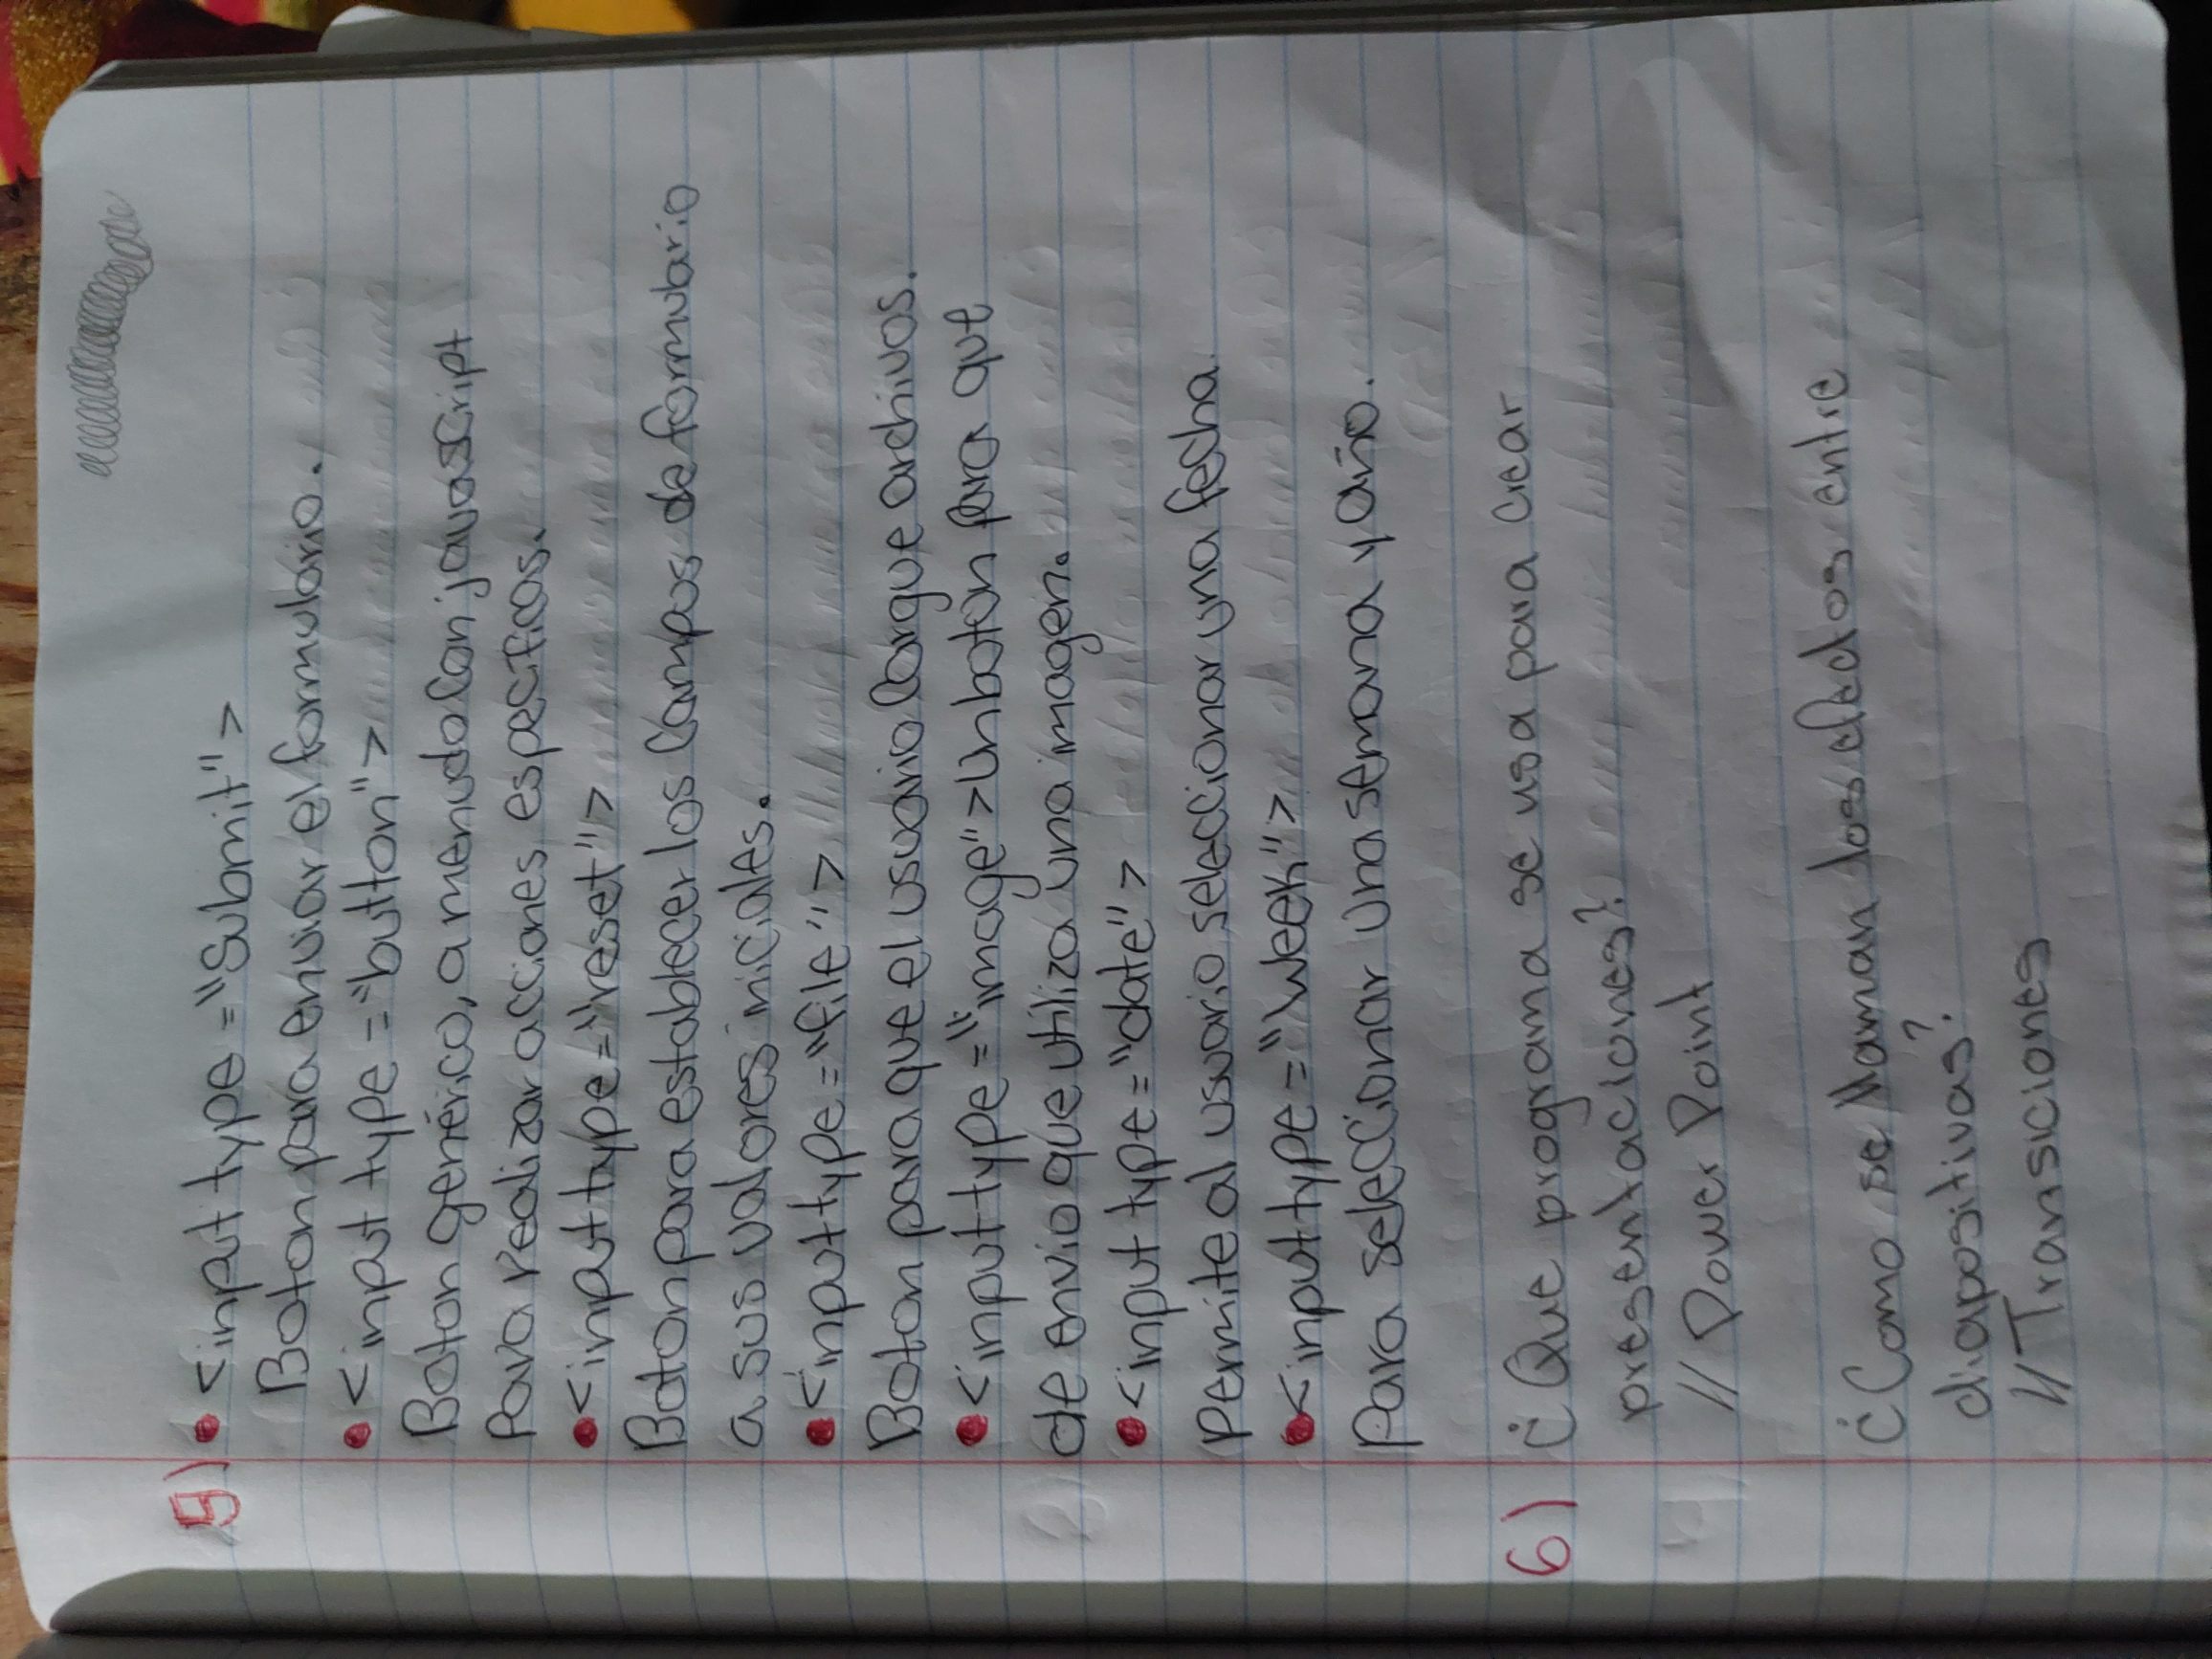 5) • <input type ="submit">
Boton para enviar el formulario.
• <input type ="button">
Boton genérico, a menudo con javascript
para realizar acciones especificas.
• <input type ="reset">
Boton para establecer los campos de formulario
a sus valores iniciales.
• <input type ="file">
Boton para que el usuario cargue archivos.
• <input type ="image"> Un boton para que
de envio que utiliza una imagen.
• <input type ="date">
Permite al usuario seleccionar una fecha.
• <input type ="week">
Para seleccionar una semana y año.
6) ¿Que programa se usa para crear
presentaciones?
// Power Point
¿Como se llaman los efectos entre
diapositivas?
// Transiciones